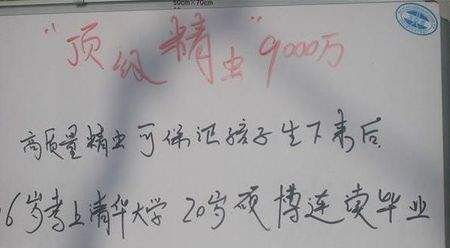 50cm×70cm
"顶级精虫"9000万
高质量精虫可保证孩子生下来后,
6岁考上清华大学 20岁硕博连读毕业